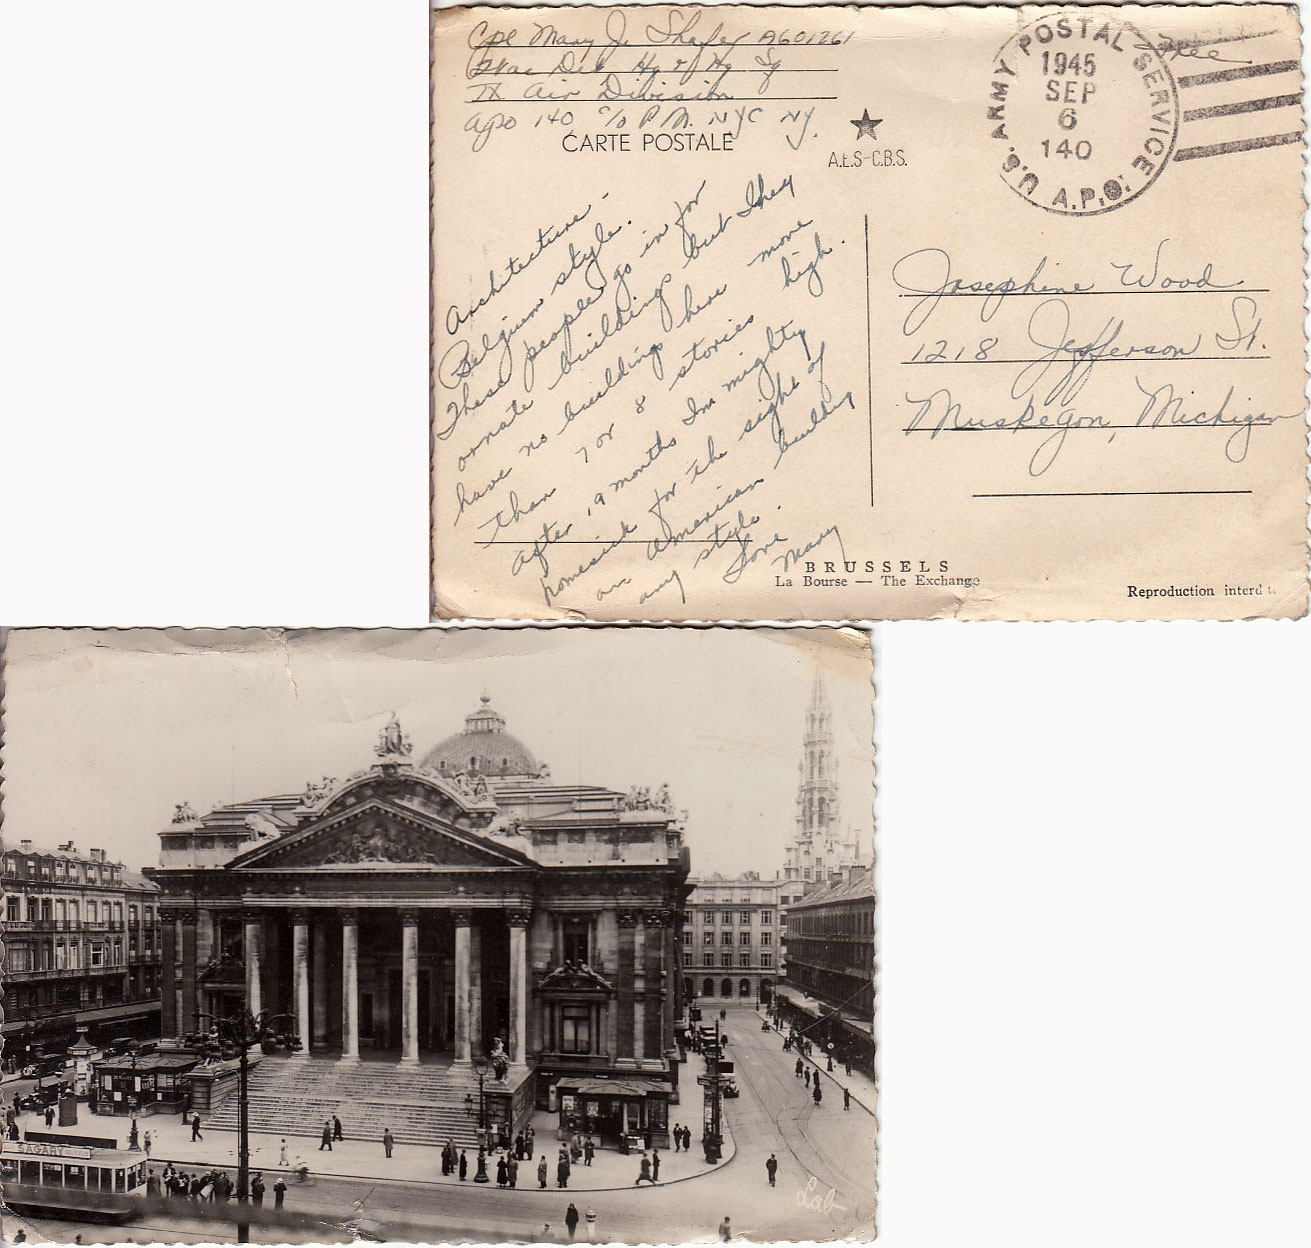 Cpl Mary J. Shafer A601261
Wac Det Hq & Hq Sq
IX Air Division
Apo 140 c/o P.M. NYC NY.
Free
CARTE POSTALE
A.E.S-C.B.S.
U.S. ARMY POSTAL SERVICE
1945
SEP
6
140
A.P.O.
Architecture -
Belgium style.
These people go in for
ornate buildings but they
have no buildings here more
than 7 or 8 stories high.
After 19 months Im mighty
homesick for the sight of
an American building
any style.
Love
Mary
Josephine Wood
1218 Jefferson St.
Muskegon, Michigan
BRUSSELS
La Bourse — The Exchange
Reproduction interd
SAGARY
Lab